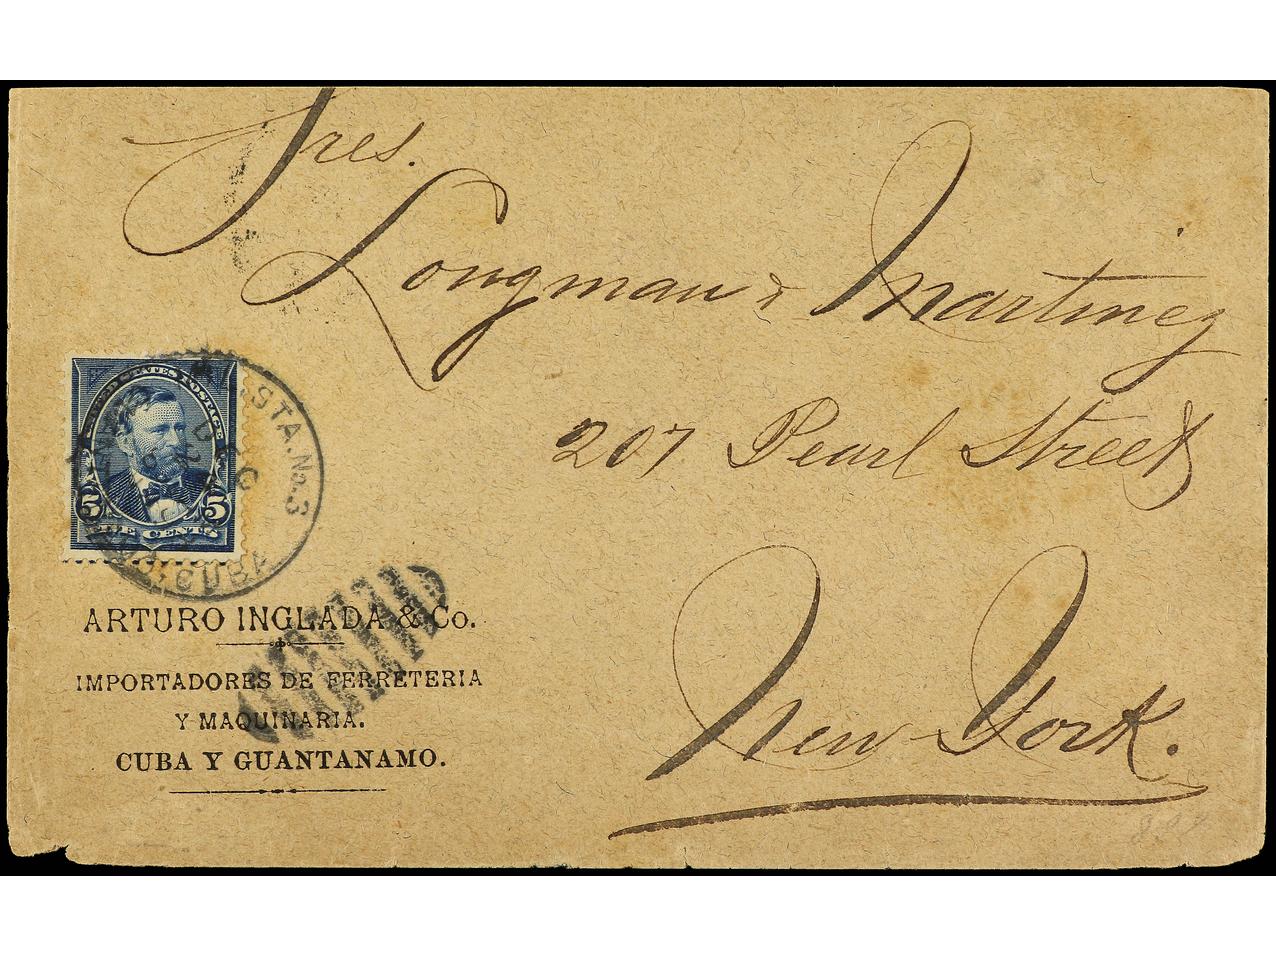 Sres.
Longman & Martinez
207 Pearl Street
New York.
UNITED STATES POSTAGE
5 5
FIVE CENTS
STA. No. 3
DEC
ARTURO INGLADA & Co.
IMPORTADORES DE FERRETERIA
Y MAQUINARIA.
CUBA Y GUANTANAMO.